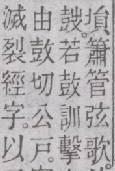 塤簫管弦歌
鼓。若鼓訓擊
由鼓切公戶。
滅裂經字。以